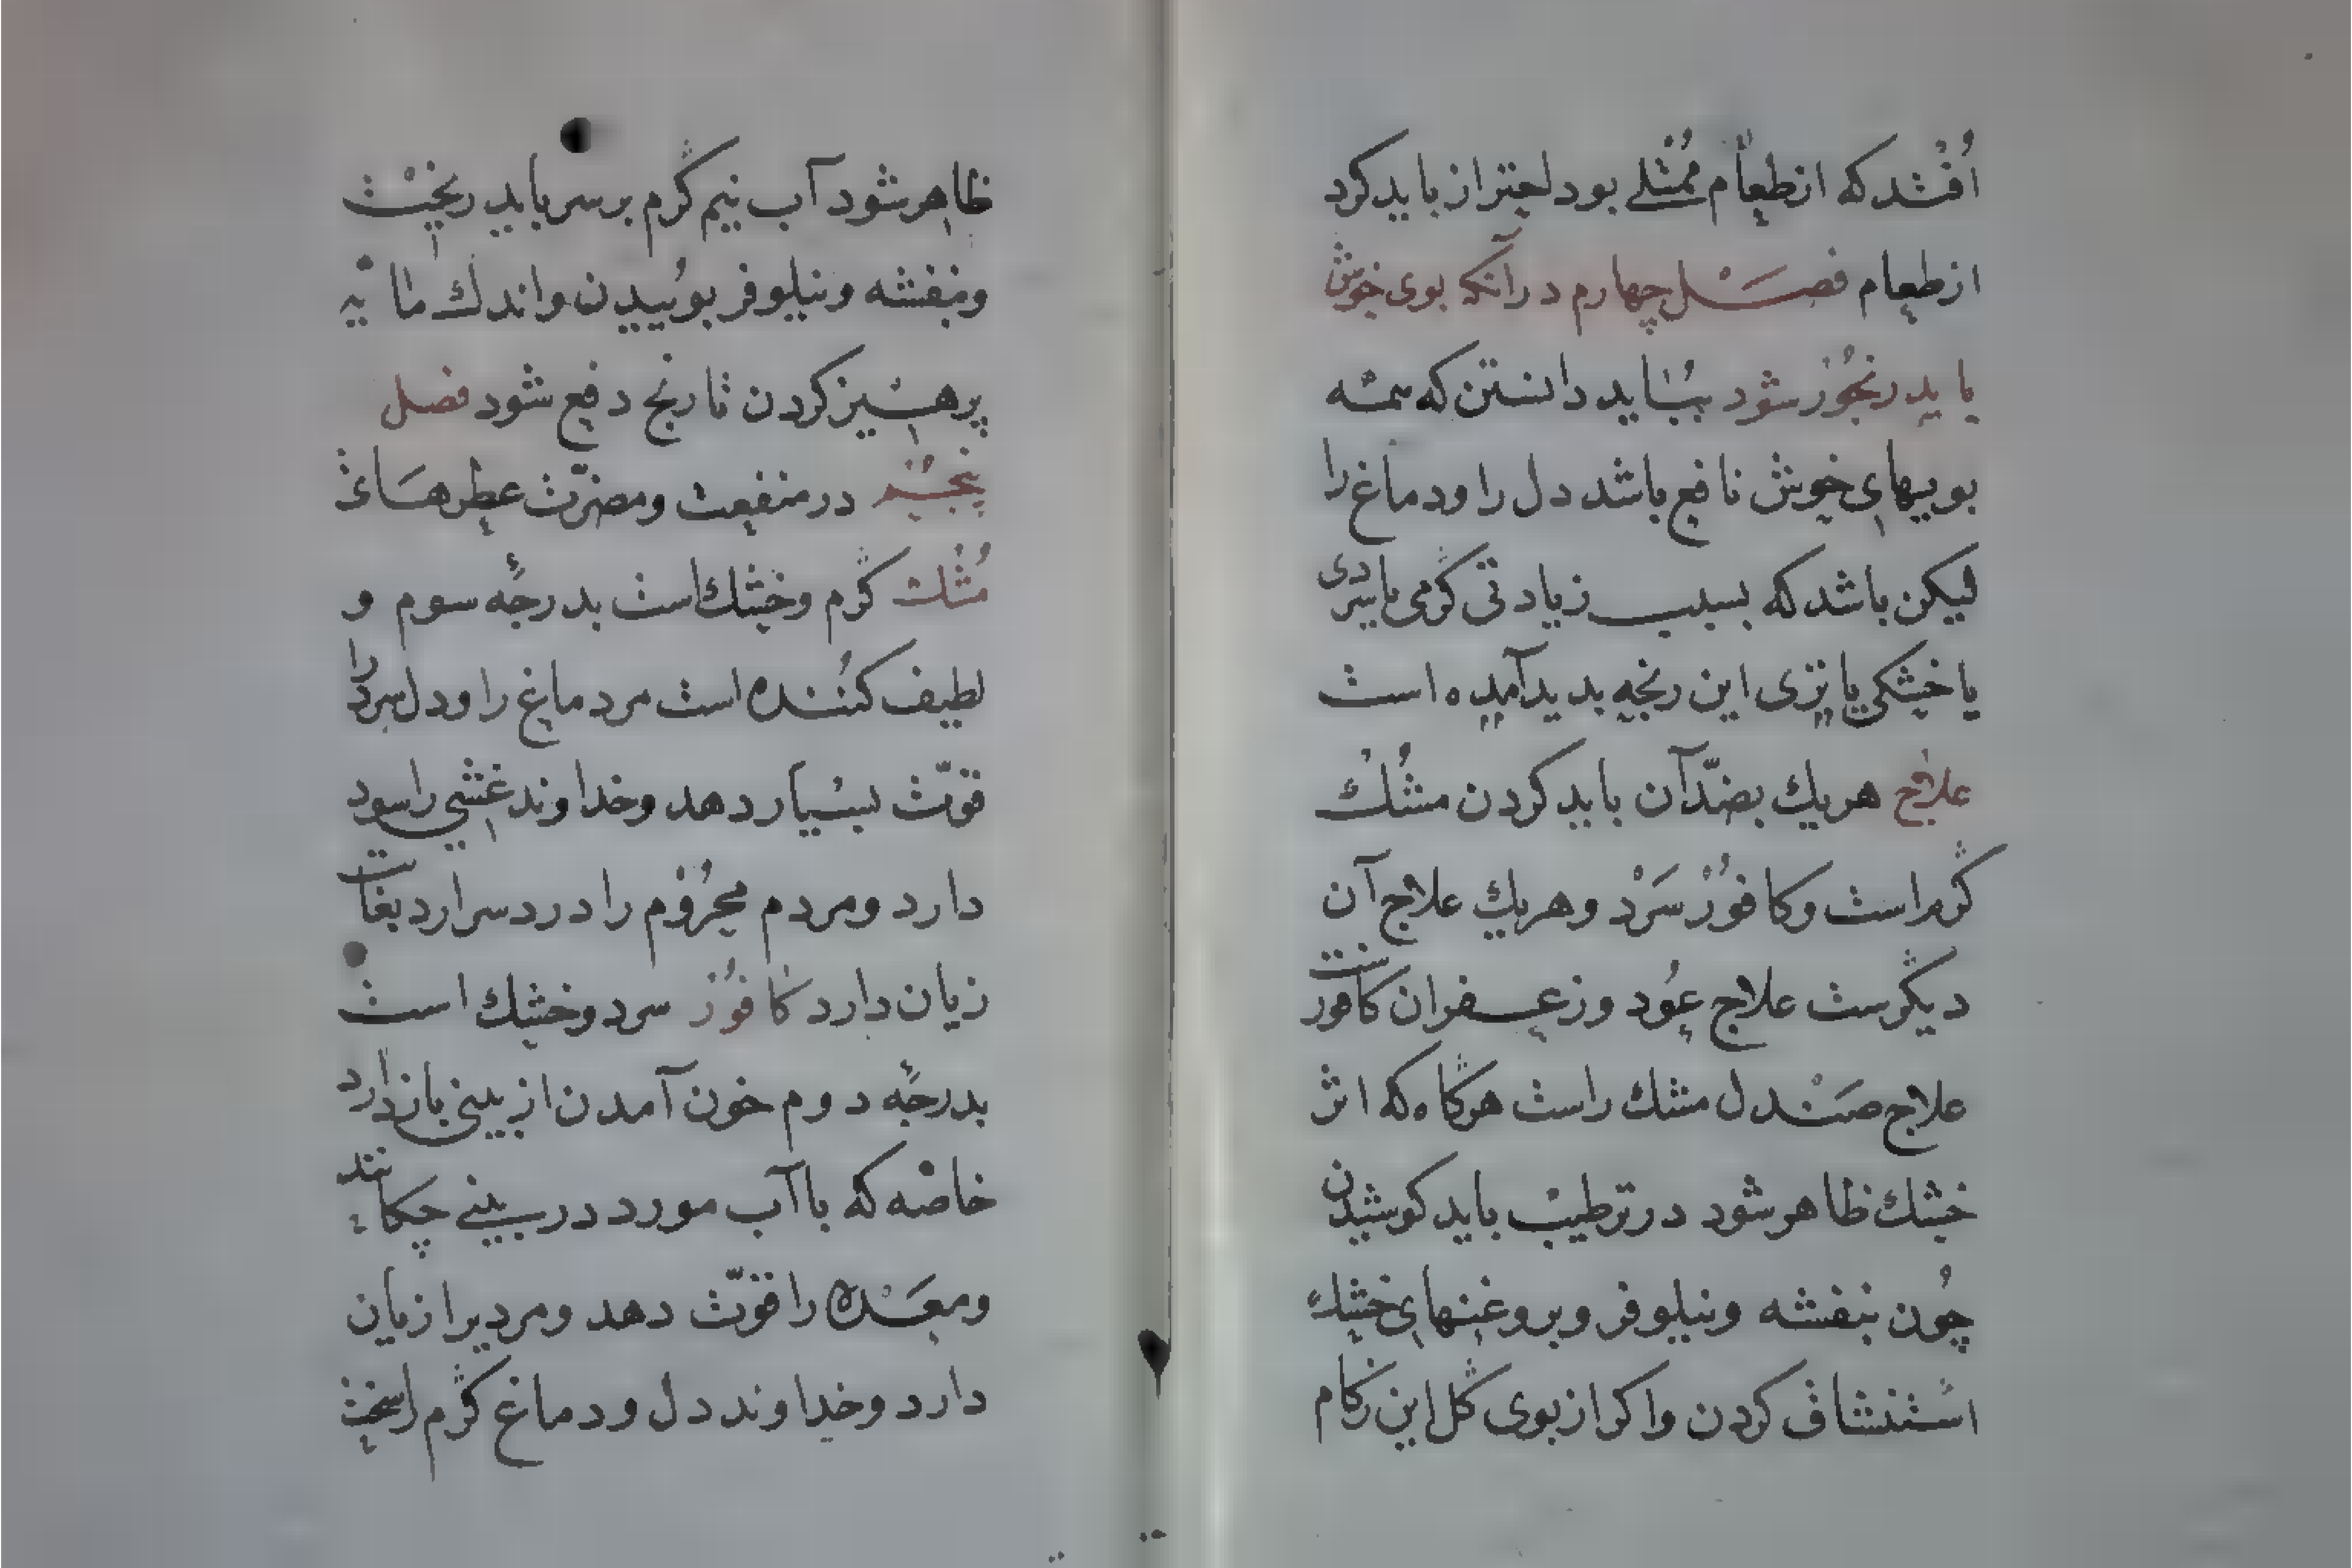 اُفتد که از طعام مُمتلی بود احتراز باید کرد
از طعام فصل چهارم در آنکه بوی خوش
یا بد رنجُور شود بباید دانستن که همه
بوییهای خوش نافع باشد دل را و دماغ را
لیکن باشد که بسبب زیادتی گرمی یا سردی
یا خشکی یا تری این رنجه بدید آمده است
علاج هریك بضدّ آن باید کردن مشك
گرم است و کافُور سَرْد و هریك علاج آن
دیگرست علاج عُود و زعفران کافورست
علاج صَنْدل مشك راست هرگاه که اثر
خشك ظاهر شود در ترطیب باید کوشیدن
چُون بنفشه و نیلوفر و بروغنهای خشك
استنشاق کردن و اگر از بوی گل این زکام
ظاهر شود آب نیم گرم بر سر باید ریخت
و بنفشه و نیلوفر بوییدن و اندك مایه
پرهیز کردن تا رنج دفع شود فصل
پنجم در منفعت و مضرّت عطرهای
مُشك گرم و خشك است بدرجهٔ سوم و
لطیف کنُنده است مر دماغ را و دل سرد را
قوّت بسیار دهد و خداوند غشی را سود
دارد و مردم محرُوم را درد سر ارد بغایت
زیان دارد کافُور سرد و خشك است
بدرجهٔ دوم خون آمدن از بینی باز دارد
خاصه که با آب مورد در بینی چکانند
و معَدْه را قوّت دهد و مر دیر را زیان
دارد و خداوند دل و دماغ گرم را سخت